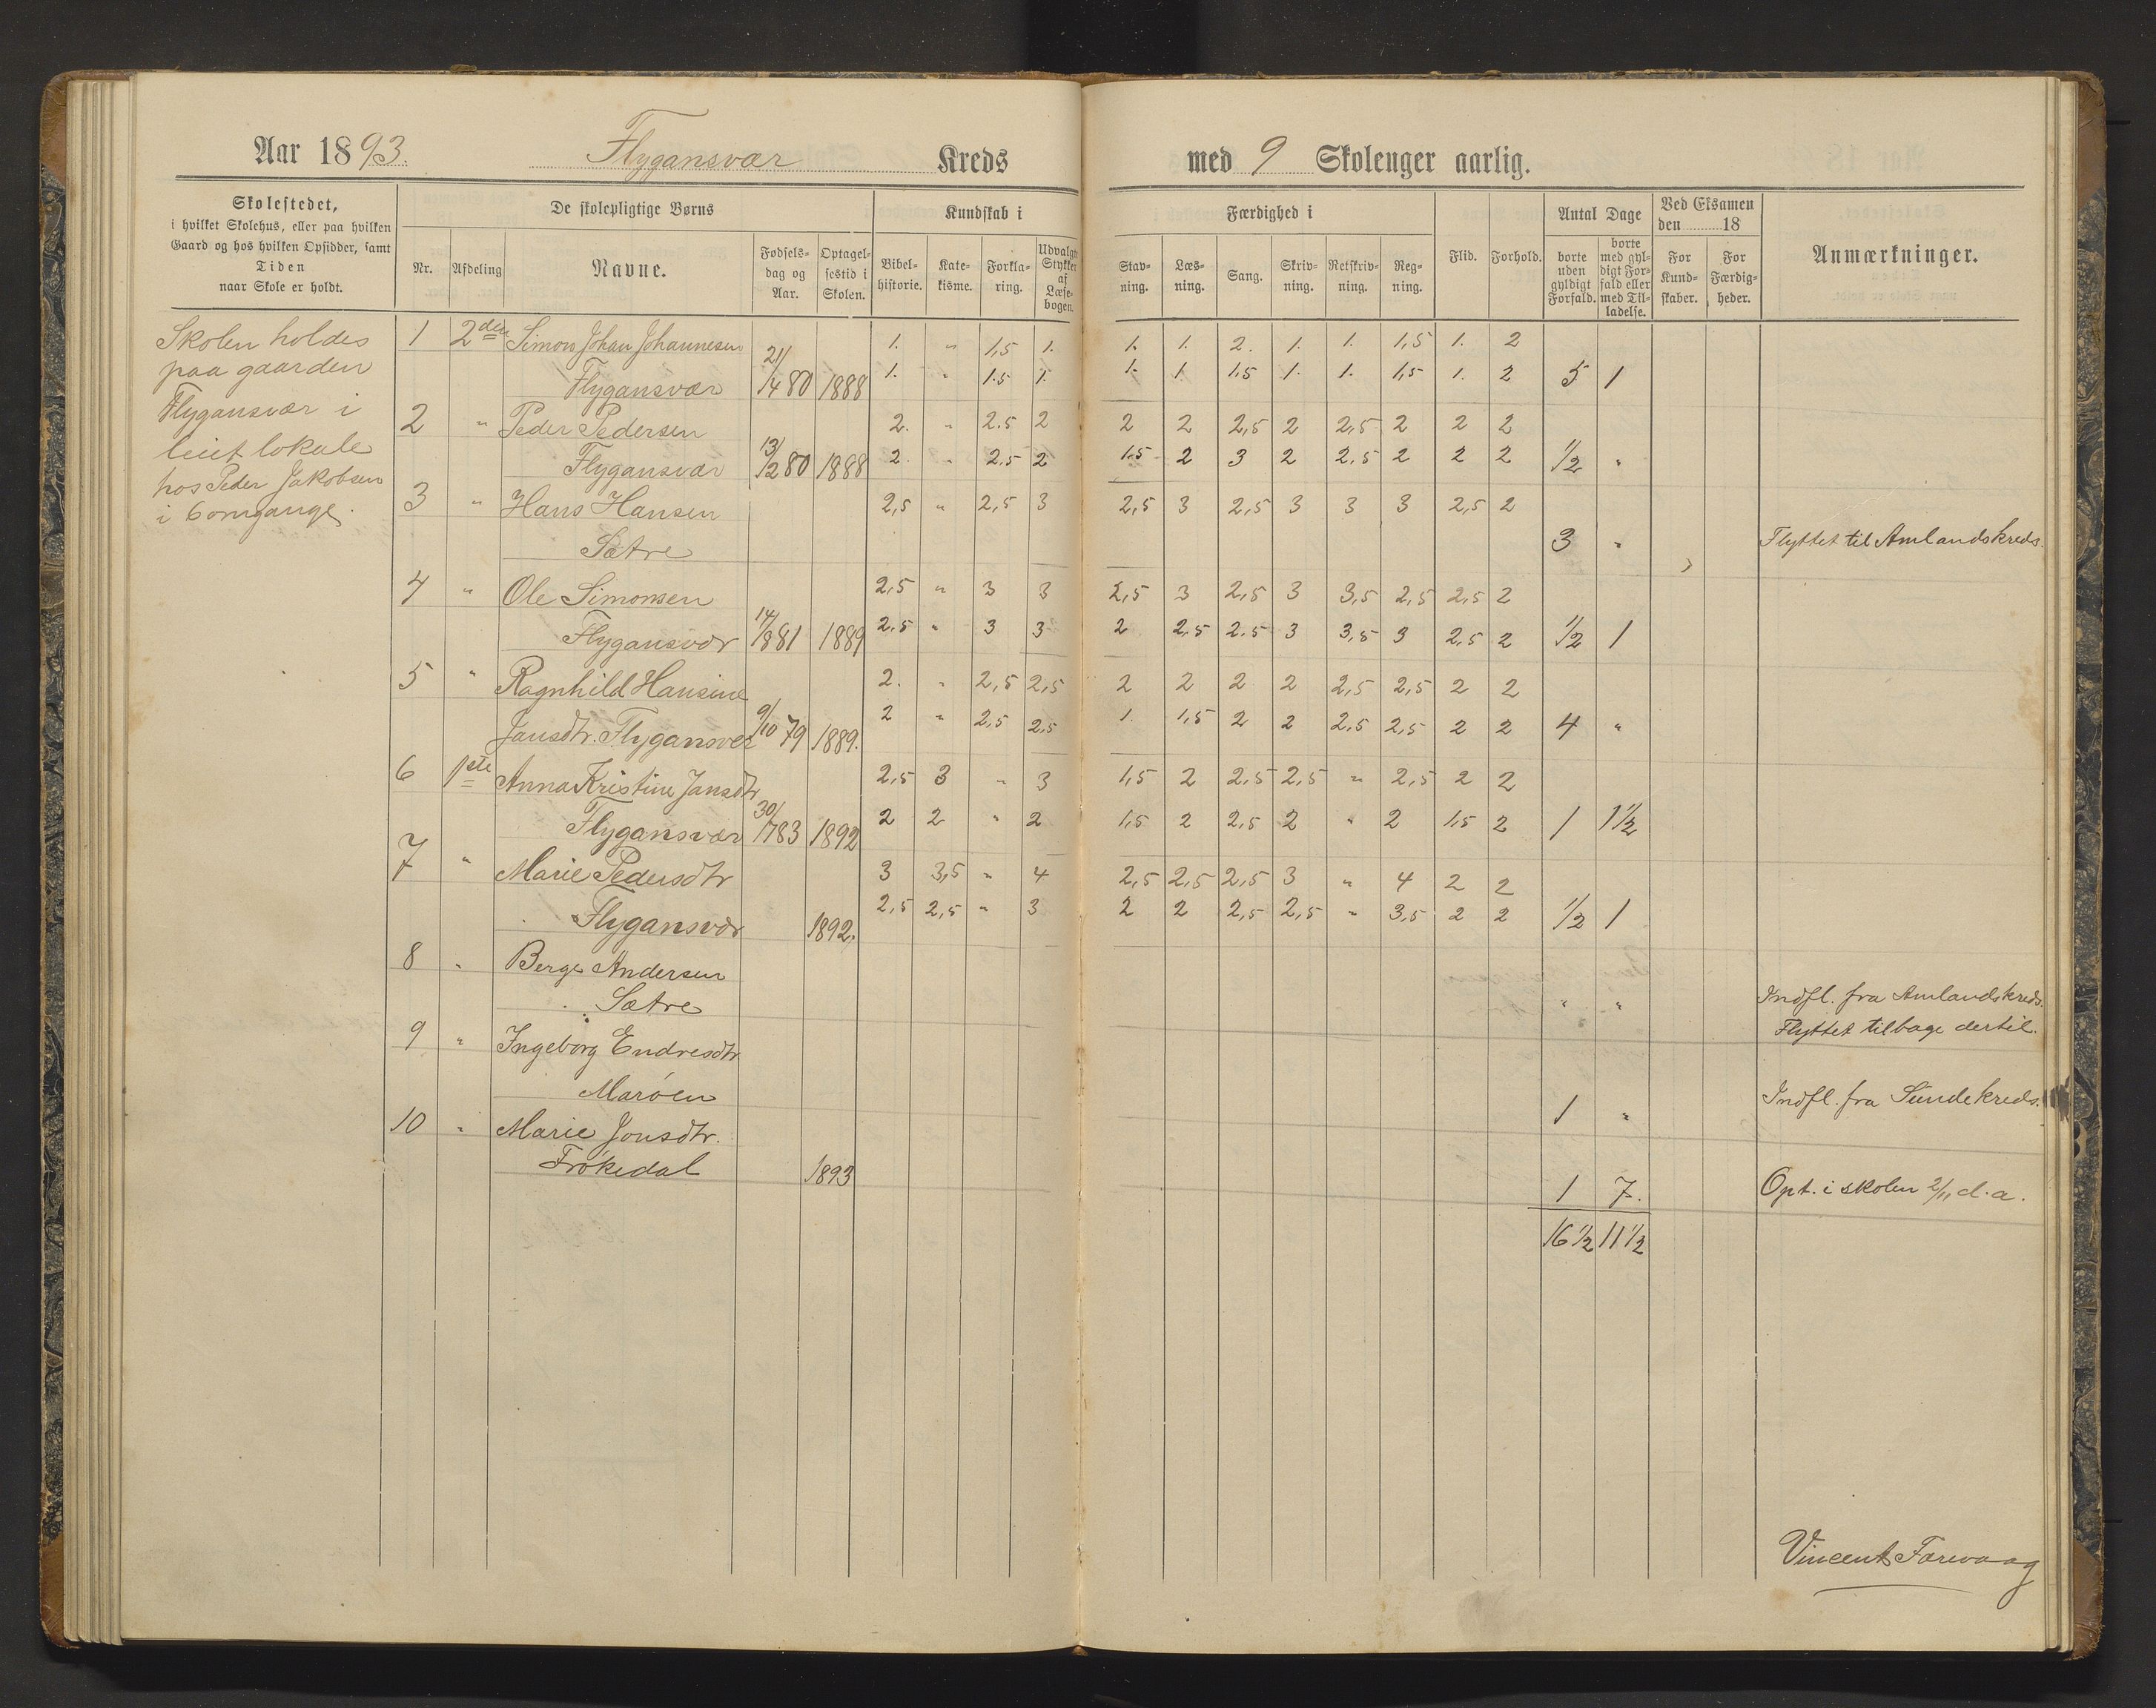 Aar 1893. Flygansvær Kreds med 9 Skoleuger aarlig.
Skolestedet,
i hvilket Skolehus, eller paa hvilken
Gaard og hos hvilken Opsidder, samt
Tiden
naar Skole er holdt.
De skolepligtige Børns
Nr. Afdeling Navne. Fødsels-dag og Aar. Optagel-sestid i Skolen.
Kundskab i
Bibel-historie. Kate-kisme. Forkla-ring. Udvalgte Stykker af Læse-bogen.
Færdighed i
Stav-ning. Læs-ning. Sang. Skriv-ning. Retskriv-ning. Reg-ning.
Flid. Forhold.
Antal Dage
borte uden gyldigt Forfald. borte med gyl-digt For-fald eller med Til-ladelse.
Ved Eksamen
den 18
For Kund-skaber. For Færdig-heder.
Anmærkninger.
Skolen holdes
paa gaarden
Flygansvær i
leiet lokale
hos Peder Jakobsen
i 6 omgange.
1 2den Simon Johan Johannesen 1. " 1,5 1. 1. 1. 2. 1. 1. 1,5 1. 2
Flygansvær 21/14 80 1888 1. " 1.5 1. 1. 1 1.5 1. 1. 1,5 1. 2 5 1
2 " Peder Pedersen 2. " 2.5 2 2 2 2,5 2 2,5 2 2 2
Flygansvær 13/2 80 1888 2. " 2.5 2 1.5 2 3 2 2.5 2 2 2 1/2 "
3 " Hans Hansen 2,5 " 2,5 3 2,5 3 2,5 3 3 3 2,5 2
Sætre 3 " Flyttet til Amlandskreds.
4 " Ole Simonsen 2,5 " 3 3 2,5 3 2,5 3 3,5 2,5 2,5 2
Flygansvær 14/8 81 1889 2.5 " 3 3 2 2.5 2.5 3 3,5 3 2.5 2 1/2 1
5 " Ragnhild Hansine 2. " 2,5 2,5 2 2 2 2 2,5 2,5 2 2
Jansdtr. Flygansvær 9/10 79 1889. 2 " 2,5 2,5 1. 1,5 2 2 2.5 2,5 2 2 4 "
6 1ste Anna Kristine Jansdtr 2,5 3 " 3 1,5 2 2,5 2,5 " 2,5 2 2
Flygansvær 30/7 83 1892 2 2 " 2 1,5 2 2,5 2 " 2 1,5 2 1 1 1/2
7 " Marie Pedersdtr 3 3,5 " 4 2,5 2,5 2,5 3 " 4 2 2
Flygansvær 1892. 2,5 2,5 " 3 2 2 2,5 2,5 " 3,5 2 2 1/2 1
8 " Berge Andersen
Sætre " " Indfl. fra Amlandskreds.
Flyttet tilbage dertil.
9 " Ingeborg Endresdtr
Marøen 1 " Indfl. fra Sundekreds.
10 " Marie Jonsdtr.
Frøkedal 1893 1 7. Opt. i skolen 2/11 d.a.
16 1/2 11 1/2
Vincent Farevaag